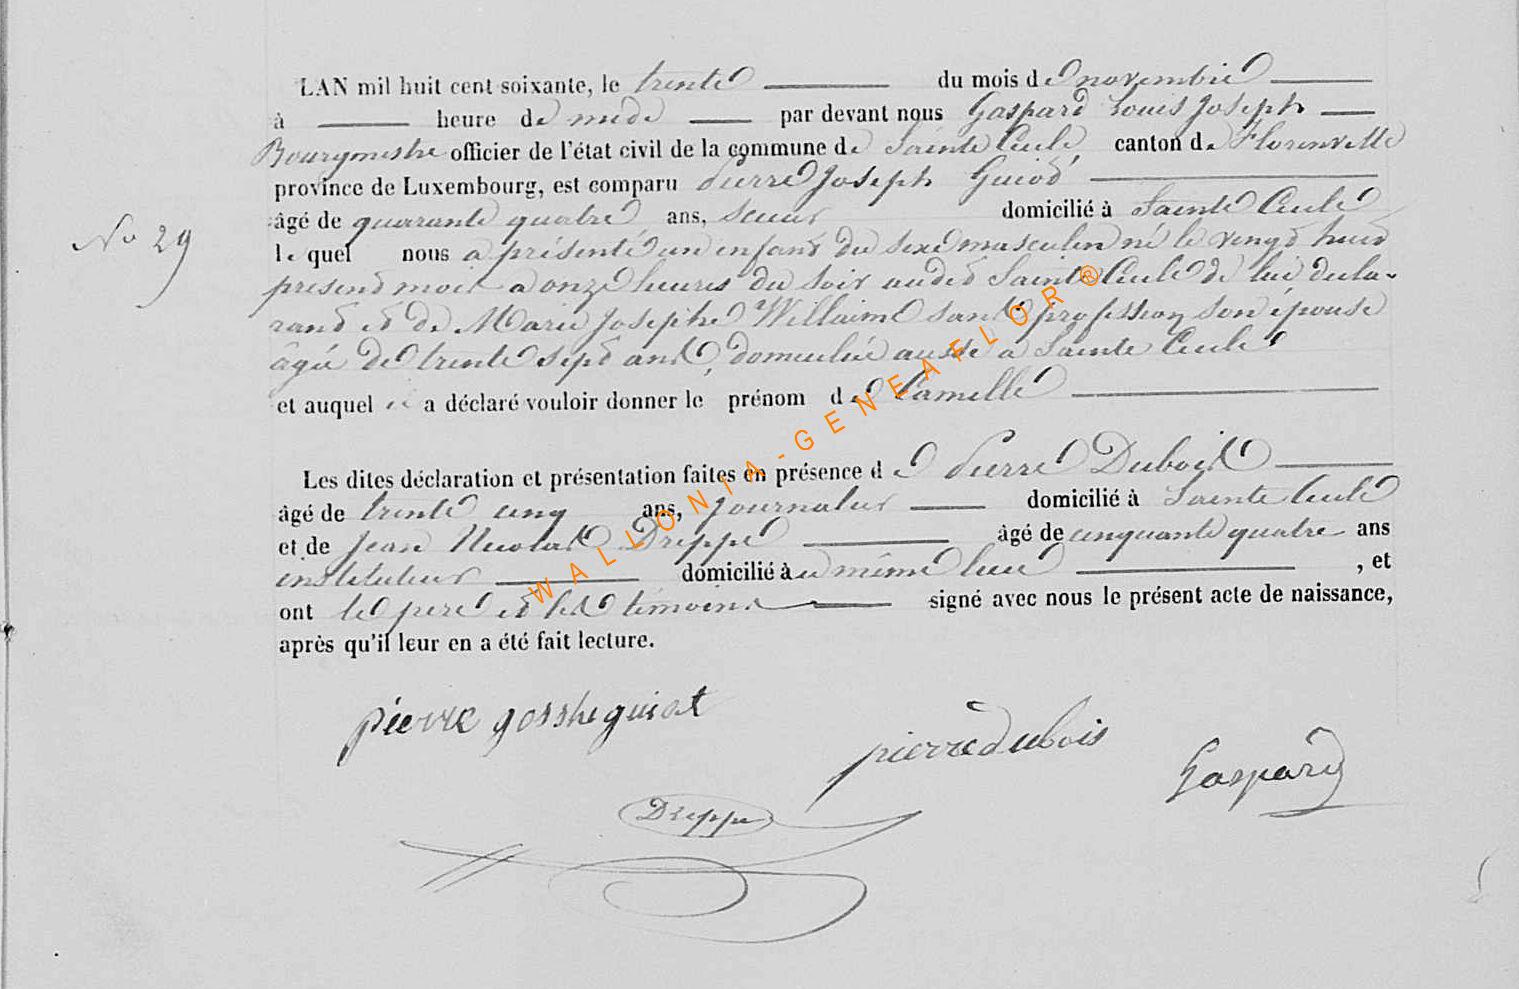 LAN mil huit cent soixante, le trente du mois de novembre
à heure de midi par devant nous Gaspard Louis Joseph
Bourgmestre officier de l'état civil de la commune de Sainte Cecile, canton de Florenville
province de Luxembourg, est comparu Pierre Joseph Guiot
âgé de quarante quatre ans, scieur domicilié à Sainte Cecile
No 29
le quel nous a présenté un enfant du sexe masculin né le vingt huit
present mois a onze heures du soir audit Sainte Cecile de lui decla-
rant et de Marie Josephe Willaime sans profession son épouse
âgée de trente sept ans, domiciliée aussi a Sainte Cecile
et auquel il a déclaré vouloir donner le prénom de Camille
Les dites déclaration et présentation faites en présence de Pierre Dubois
âgé de trente cinq ans, journalier domicilié à Sainte Cecile
et de Jean Nicolas Dreppe âgé de cinquante quatre ans
instituteur domicilié au même lieu , et
ont le pere et les témoins signé avec nous le présent acte de naissance,
après qu'il leur en a été fait lecture.
pierre guiot
pierre dubois
Gaspard
Dreppe
WALLONIA-GENEAFLOR®